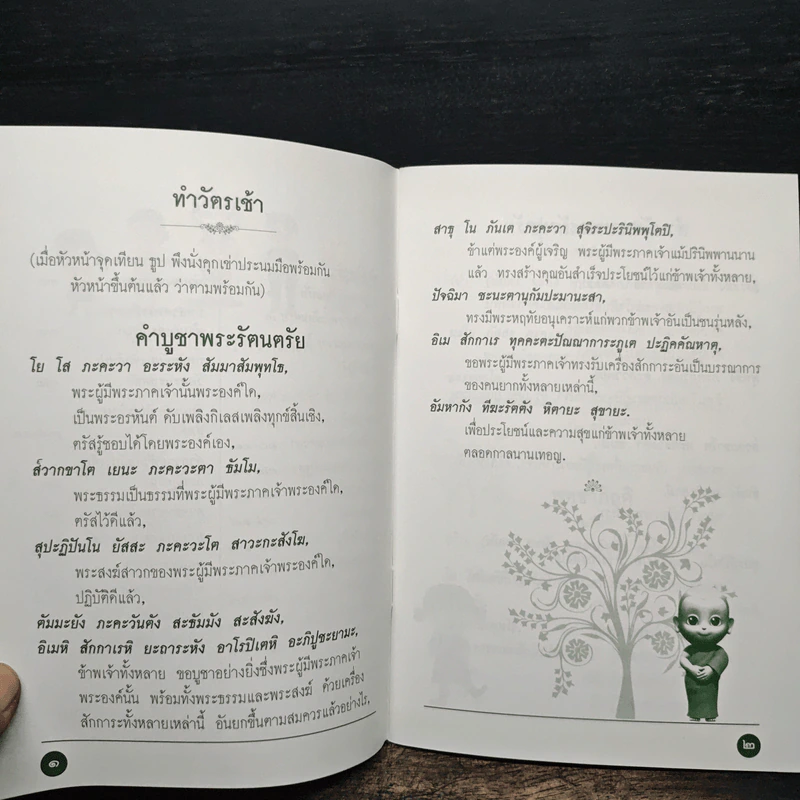 ทำวัตรเช้า
(เมื่อหัวหน้าจุดเทียน ธูป พึงนั่งคุกเข่าประนมมือพร้อมกัน
หัวหน้าขึ้นต้นแล้ว ว่าตามพร้อมกัน)
คำบูชาพระรัตนตรัย
โย โส ภะคะวา อะระหัง สัมมาสัมพุทโธ,
พระผู้มีพระภาคเจ้านั้นพระองค์ใด,
เป็นพระอรหันต์ ดับเพลิงกิเลสเพลิงทุกข์สิ้นเชิง,
ตรัสรู้ชอบได้โดยพระองค์เอง,
ส๎วากขาโต เยนะ ภะคะวะตา ธัมโม,
พระธรรมเป็นธรรมที่พระผู้มีพระภาคเจ้าพระองค์ใด,
ตรัสไว้ดีแล้ว,
สุปะฏิปันโน ยัสสะ ภะคะวะโต สาวะกะสังโฆ,
พระสงฆ์สาวกของพระผู้มีพระภาคเจ้าพระองค์ใด,
ปฏิบัติดีแล้ว,
ตัมมะยัง ภะคะวันตัง สะธัมมัง สะสังฆัง,
อิเมหิ สักกาเรหิ ยะถาระหัง อาโรปิเตหิ อะภิปูชะยามะ,
ข้าพเจ้าทั้งหลาย ขอบูชาอย่างยิ่งซึ่งพระผู้มีพระภาคเจ้า
พระองค์นั้น พร้อมทั้งพระธรรมและพระสงฆ์ ด้วยเครื่อง
สักการะทั้งหลายเหล่านี้ อันยกขึ้นตามสมควรแล้วอย่างไร,
๑
สาธุ โน ภันเต ภะคะวา สุจิระปะรินิพพุโตปิ,
ข้าแต่พระองค์ผู้เจริญ พระผู้มีพระภาคเจ้าแม้ปรินิพพานนาน
แล้ว ทรงสร้างคุณอันสำเร็จประโยชน์ไว้แก่ข้าพเจ้าทั้งหลาย,
ปัจฉิมา ชะนะตานุกัมปะมานะสา,
ทรงมีพระหฤทัยอนุเคราะห์แก่พวกข้าพเจ้าอันเป็นชนรุ่นหลัง,
อิเม สักกาเร ทุคคะตะปัณณาการะภูเต ปะฏิคคัณหาตุ,
ขอพระผู้มีพระภาคเจ้าทรงรับเครื่องสักการะอันเป็นบรรณาการ
ของคนยากทั้งหลายเหล่านี้,
อัมหากัง ทีฆะรัตตัง หิตายะ สุขายะ.
เพื่อประโยชน์และความสุขแก่ข้าพเจ้าทั้งหลาย
ตลอดกาลนานเทอญ.
๒